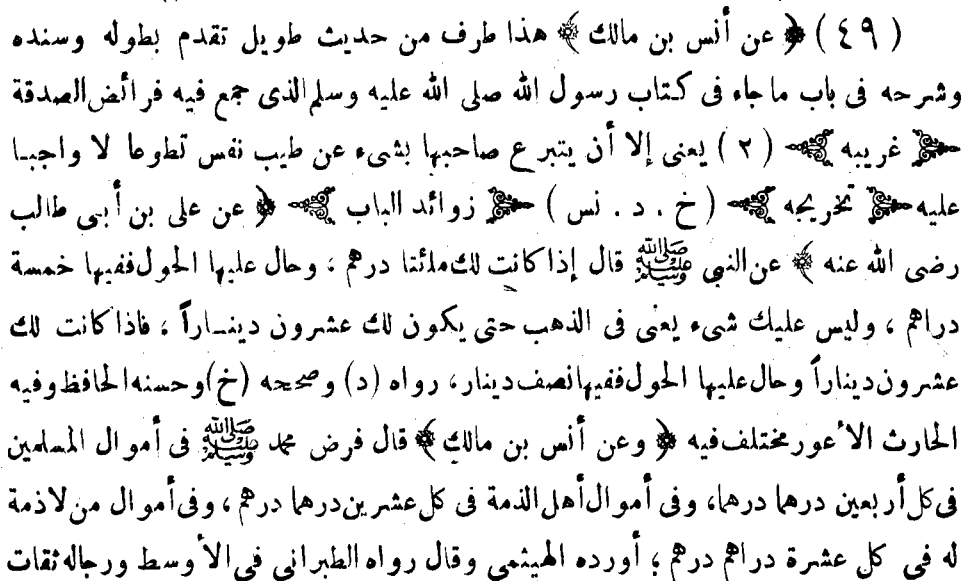 ( ٤٩ ) ﴿ عن أنس بن مالك ﴾ هذا طرف من حديث طويل تقدم بطوله وسنده
وشرحه فى باب ما جاء فى كتاب رسول الله صلى الله عليه وسلم الذى جمع فيه فرائض الصدقة
غريبه ( ٢ ) يعنى إلا أن يتبرع صاحبها بشىء عن طيب نفس تطوعا لا واجبا
عليه تخريجه ( خ . د . نس ) زوائد الباب ﴿ عن على بن أبى طالب
رضى الله عنه ﴾ عن النبى ﷺ قال إذا كانت لك مائتا درهم ، وحال عليها الحول ففيها خمسة
دراهم ، وليس عليك شىء يعنى فى الذهب حتى يكون لك عشرون ديناراً ، فاذا كانت لك
عشرون ديناراً وحال عليها الحول ففيها نصف دينار ، رواه (د) وصححه (خ) وحسنه الحافظ وفيه
الحارث الأعور مختلف فيه ﴿ وعن أنس بن مالك ﴾ قال فرض محمد ﷺ فى أموال المسلمين
فى كل أربعين درهما درهما ، وفى أموال أهل الذمة فى كل عشرين درهما درهم ، وفى أموال من لا ذمة
له فى كل عشرة دراهم درهم ؛ أورده الهيثمى وقال رواه الطبرانى فى الأوسط ورجاله ثقات